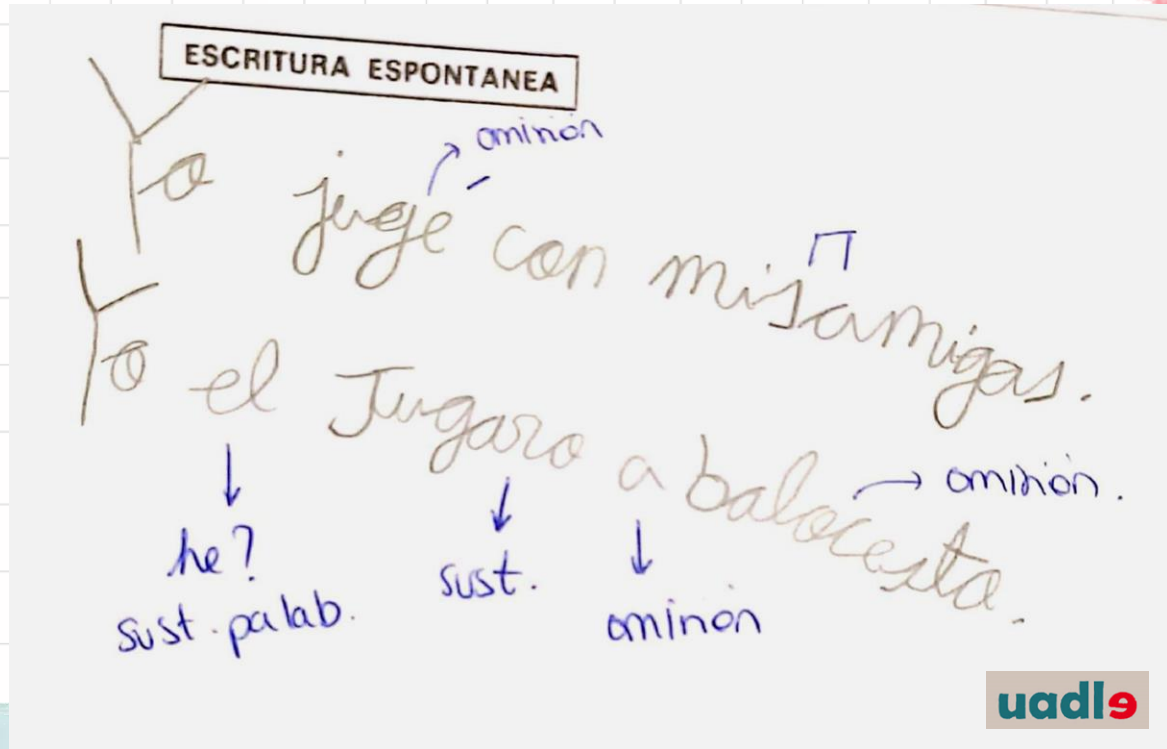 ESCRITURA ESPONTANEA
omisión
Yo jugé con misamigas.
Yo el Jugaro a balocesto.
omisión.
he?
sust. palab.
sust.
omisión
uadle